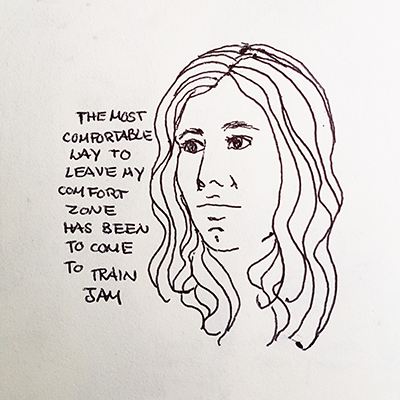 THE MOST
COMFORTABLE
WAY TO
LEAVE MY
COMFORT
ZONE
HAS BEEN
TO COME
TO TRAIN
JAM